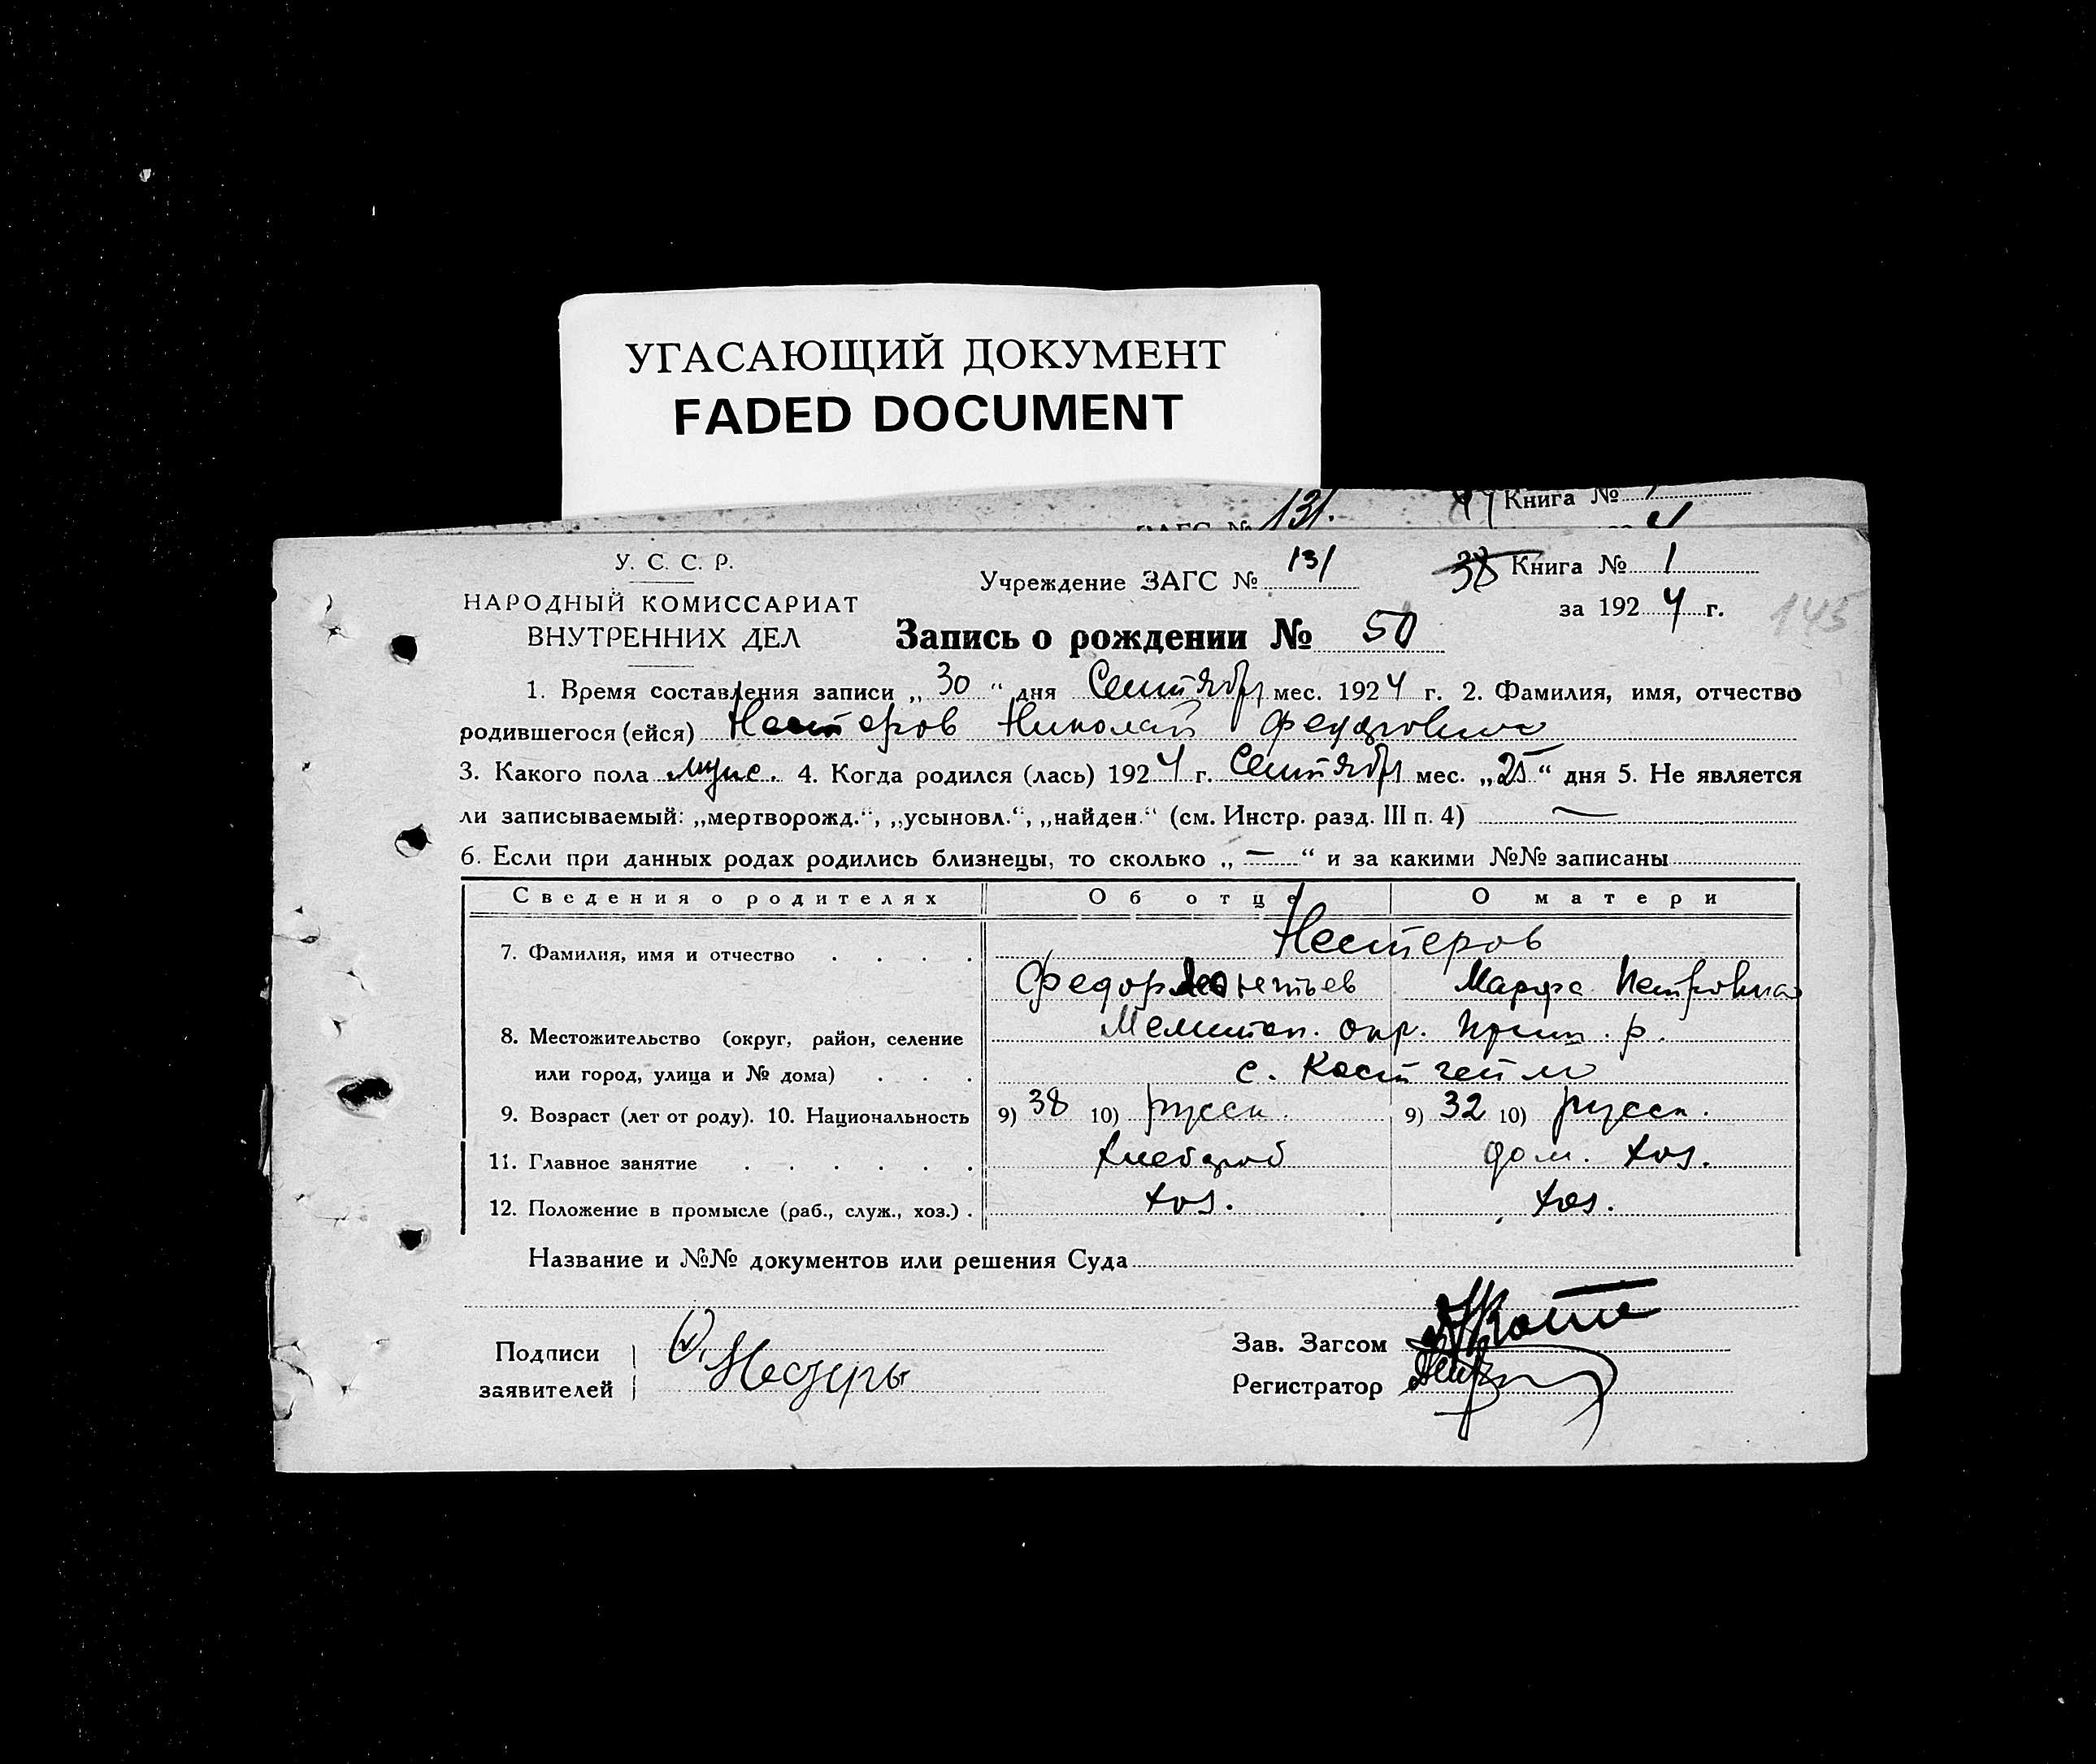 УГАСАЮЩИЙ ДОКУМЕНТ
FADED DOCUMENT
131. Книга №
У. С. С. Р.
НАРОДНЫЙ КОМИССАРИАТ
ВНУТРЕННИХ ДЕЛ
Учреждение ЗАГС № 131
38 Книга № 1
за 1924 г.
145
Запись о рождении № 50
1. Время составления записи „30“ дня Сентября мес. 1924 г. 2. Фамилия, имя, отчество
родившегося (ейся) Нестеров Николай Федорович
3. Какого пола муж. 4. Когда родился (лась) 1924 г. Сентября мес. „25“ дня 5. Не является
ли записываемый: „мертворожд.“, „усыновл.“, „найден.“ (см. Инстр. разд. III п. 4) —
6. Если при данных родах родились близнецы, то сколько „—“ и за какими №№ записаны
Сведения о родителях Об отце О матери
7. Фамилия, имя и отчество Нестеров
Федор Леонтьев Марфа Петровна
8. Местожительство (округ, район, селение Мелитоп. окр. Приш. р.
или город, улица и № дома) с. Костгейм
9. Возраст (лет от роду). 10. Национальность 9) 38 10) русск. 9) 32 10) русск.
11. Главное занятие хлебороб дом. хоз.
12. Положение в промысле (раб., служ., хоз.) хоз. хоз.
Название и №№ документов или решения Суда
Подписи
заявителей
Зав. Загсом
Регистратор